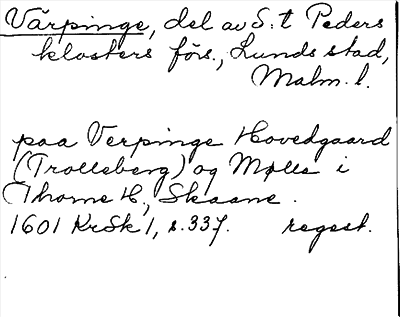 Värpinge, del av S:t Peders
klosters förs., Lunds stad,
Malm. l.
paa Verpinge Hovedgaard
(Trolleberg) og Mølle i
Thorne H., Skaane.
1601 KrSk 1, s. 337. regest.